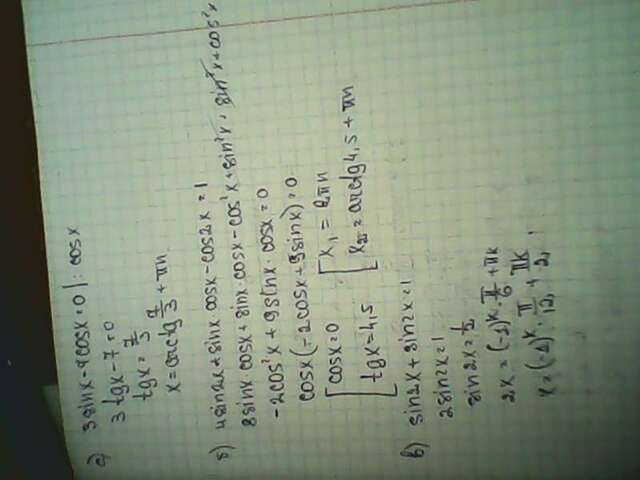 а) 3sinx-7cosx=0|:cosx
3tgx-7=0
tgx=7/3
x=arctg 7/3+πn
б) 4sin2x+sinx cosx-cos2x=1
8sinx cosx+sinx·cosx-cos²x+sin²x=sin²x+cos²x
-2cos²x+9sinx·cosx=0
cosx(-2cosx+9sinx)=0
[cosx=0 [x₁=2πn
[tgx=4,5 [x₂=arctg4,5+πn
в) sin2x+sin2x=1
2sin2x=1
sin2x=1/2
2x=(-1)ᵏ·π/6+πk
x=(-1)ᵏ·π/12+πk/2